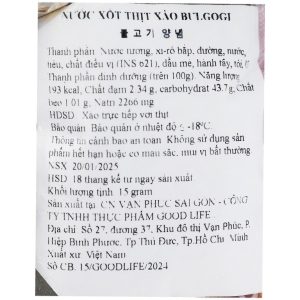 NƯỚC XỐT THỊT XÀO BULGOGI
불고기 양념
Thành phần Nước tương, xi-rô bắp, đường, nước,
tiêu, chất điều vị (INS 621), dầu mè, hành tây, tỏi,
Thành phần dinh dưỡng (trên 100g). Năng lượng
193 kcal, Chất đạm 2.34 g, carbohydrat 43.7g, Chất
béo 1.01 g, Natri 2266 mg
HDSD Xào trực tiếp với thịt
Bảo quản Bảo quản ở nhiệt độ ≤ -18°C.
Thông tin cảnh báo an toàn Không sử dụng sản
phẩm hết hạn hoặc có màu sắc, mùi vị bất thường
NSX 20/01/2025
HSD 18 tháng kể từ ngày sản xuất
Khối lượng tịnh 15 gram
Sản xuất tại CN VẠN PHÚC SÀI GÒN - CÔNG
TY TNHH THỰC PHẨM GOOD LIFE
Địa chỉ Số 27, đường 37, Khu đô thị Vạn Phúc, P.
Hiệp Bình Phước, Tp Thủ Đức, Tp.Hồ Chí Minh
Xuất xứ Việt Nam
Số CB. 15/GOODLIFE/2024